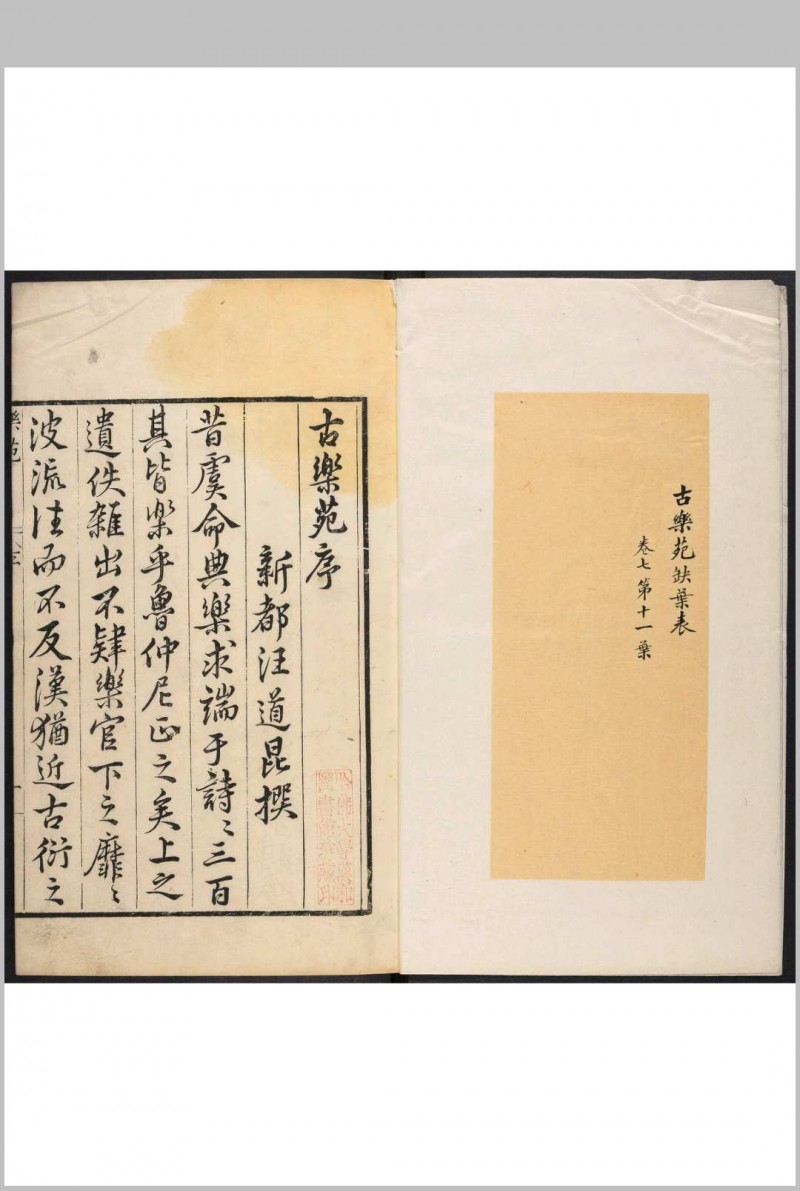 古樂苑缺葉表
卷七第十一葉
古樂苑序
新都汪道昆撰
昔虞命典樂求端于詩〻三百
其皆樂乎魯仲尼正之矣上之
遺佚雜出不肄樂官下之靡〻
波流往而不反漢猶近古衍之
樂苑